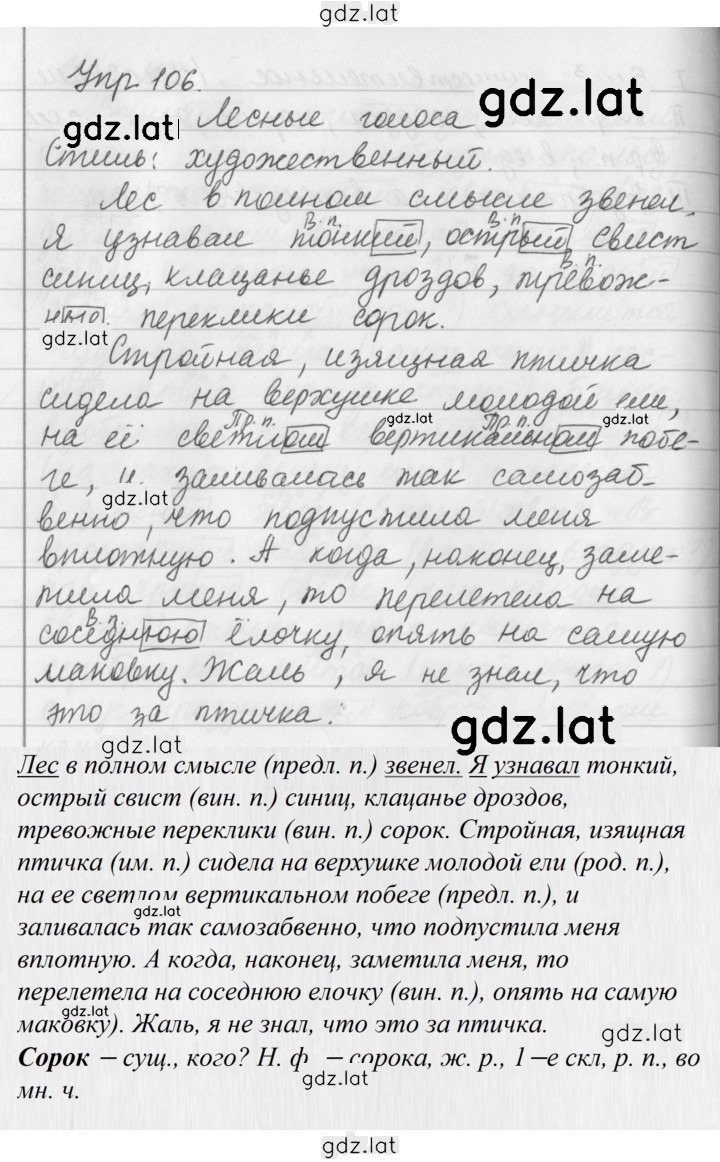 gdz.lat
Упр. 106.
gdz.lat
gdz.lat
Лесные голоса
Стиль: художественный.
Лес в полном смысле звенел.
В. п. В. п.
Я узнавал тонкий, острый свист
В. п.
синиц, клацанье дроздов, тревож-
ные переклики сорок.
gdz.lat
Стройная, изящная птичка
сидела на верхушке молодой ели,
Пр. п. gdz.lat Пр. п. gdz.lat
на её светлом вертикальном побе-
ге, и заливалась так самозаб-
gdz.lat
венно, что подпустила меня
вплотную. А когда, наконец, заме-
тила меня, то перелетела на
В. п.
соседнюю ёлочку, опять на самую
маковку. Жаль, я не знал, что
это за птичка.
gdz.lat
gdz.lat
Лес в полном смысле (предл. п.) звенел. Я узнавал тонкий,
острый свист (вин. п.) синиц, клацанье дроздов,
тревожные переклики (вин. п.) сорок. Стройная, изящная
птичка (им. п.) сидела на верхушке молодой ели (род. п.),
на ее светлом вертикальном побеге (предл. п.), и
gdz.lat
заливалась так самозабвенно, что подпустила меня
вплотную. А когда, наконец, заметила меня, то
перелетела на соседнюю елочку (вин. п.), опять на самую
gdz.lat
маковку). Жаль, я не знал, что это за птичка.
gdz.lat
Сорок – сущ., кого? Н. ф. – сорока, ж. р., 1–е скл, р. п., во
gdz.lat
мн. ч.
gdz.lat